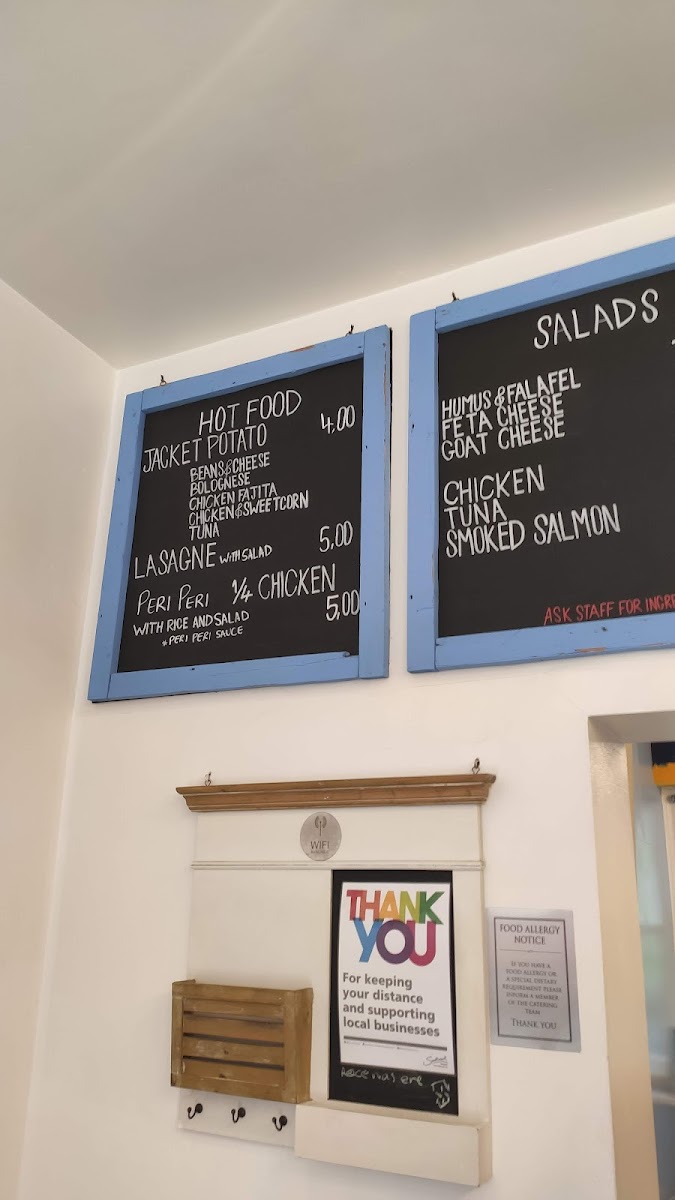 HOT FOOD
JACKET POTATO 4.00
BEANS & CHEESE
BOLOGNESE
CHICKEN FAJITA
CHICKEN & SWEETCORN
TUNA
LASAGNE WITH SALAD 5,00
PERI PERI 1/4 CHICKEN
WITH RICE AND SALAD 5,00
* PERI PERI SAUCE
SALADS
HUMUS & FALAFEL
FETA CHEESE
GOAT CHEESE
CHICKEN
TUNA
SMOKED SALMON
ASK STAFF FOR INGRE
WIFI
THANK
YOU
For keeping
your distance
and supporting
local businesses
FOOD ALLERGY
NOTICE
IF YOU HAVE A
FOOD ALLERGY OR
A SPECIAL DIETARY
REQUIREMENT PLEASE
INFORM A MEMBER
OF THE CATERING
TEAM
THANK YOU